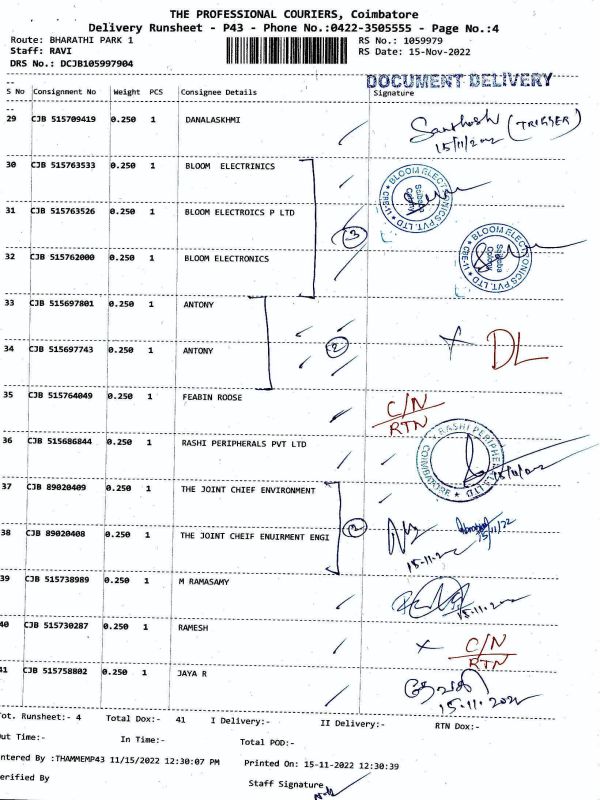 THE PROFESSIONAL COURIERS, Coimbatore
Delivery Runsheet - P43 - Phone No.:0422-3505555 - Page No.:4
Route: BHARATHI PARK 1 RS No.: 1059979
Staff: RAVI RS Date: 15-Nov-2022
DRS No.: DCJB105997904
DOCUMENT DELIVERY
S No Consignment No Weight PCS Consignee Details Signature
29 CJB 515709419 0.250 1 DANALASKHMI Santhosh (TRIGGER)
15/11/2022
30 CJB 515763533 0.250 1 BLOOM ELECTRINICS
BLOOM ELECTRONICS PVT. LTD
31 CJB 515763526 0.250 1 BLOOM ELECTROICS P LTD
3
32 CJB 515762000 0.250 1 BLOOM ELECTRONICS
BLOOM ELECTRONICS PVT. LTD
33 CJB 515697801 0.250 1 ANTONY
2 DL
34 CJB 515697743 0.250 1 ANTONY
35 CJB 515764049 0.250 1 FEABIN ROOSE C/N
RTN
36 CJB 515686844 0.250 1 RASHI PERIPHERALS PVT LTD
RASHI PERIPHE LTD COIMBATORE
37 CJB 89020409 0.250 1 THE JOINT CHIEF ENVIRONMENT
2 15/11/22
38 CJB 89020408 0.250 1 THE JOINT CHEIF ENUIRMENT ENGI
15-11-2022
39 CJB 515738989 0.250 1 M RAMASAMY
15-11-2022
40 CJB 515730287 0.250 1 RAMESH × C/N
RTN
41 CJB 515758802 0.250 1 JAYA R
15-11-2022
Tot. Runsheet:- 4 Total Dox:- 41 I Delivery:- II Delivery:- RTN Dox:-
Out Time:- In Time:- Total POD:-
Entered By :THAMMEMP43 11/15/2022 12:30:07 PM Printed On: 15-11-2022 12:30:39
Verified By Staff Signature